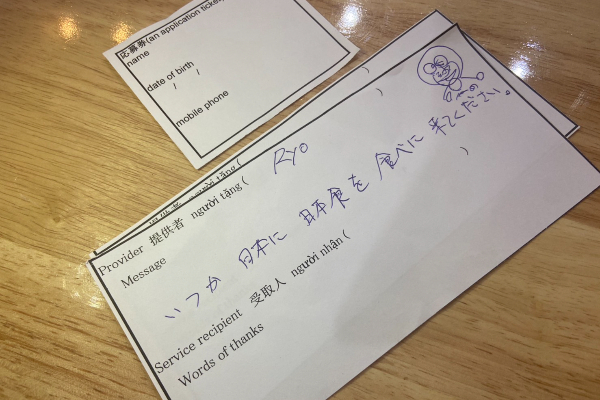 応募券(an application ticket)
name
date of birth
/ /
mobile phone
Provider 提供者 người tặng ( Ryo )
Message
いつか 日本に 日本食を 食べに 来てください。
Service recipient 受取人 người nhận ( )
Words of thanks